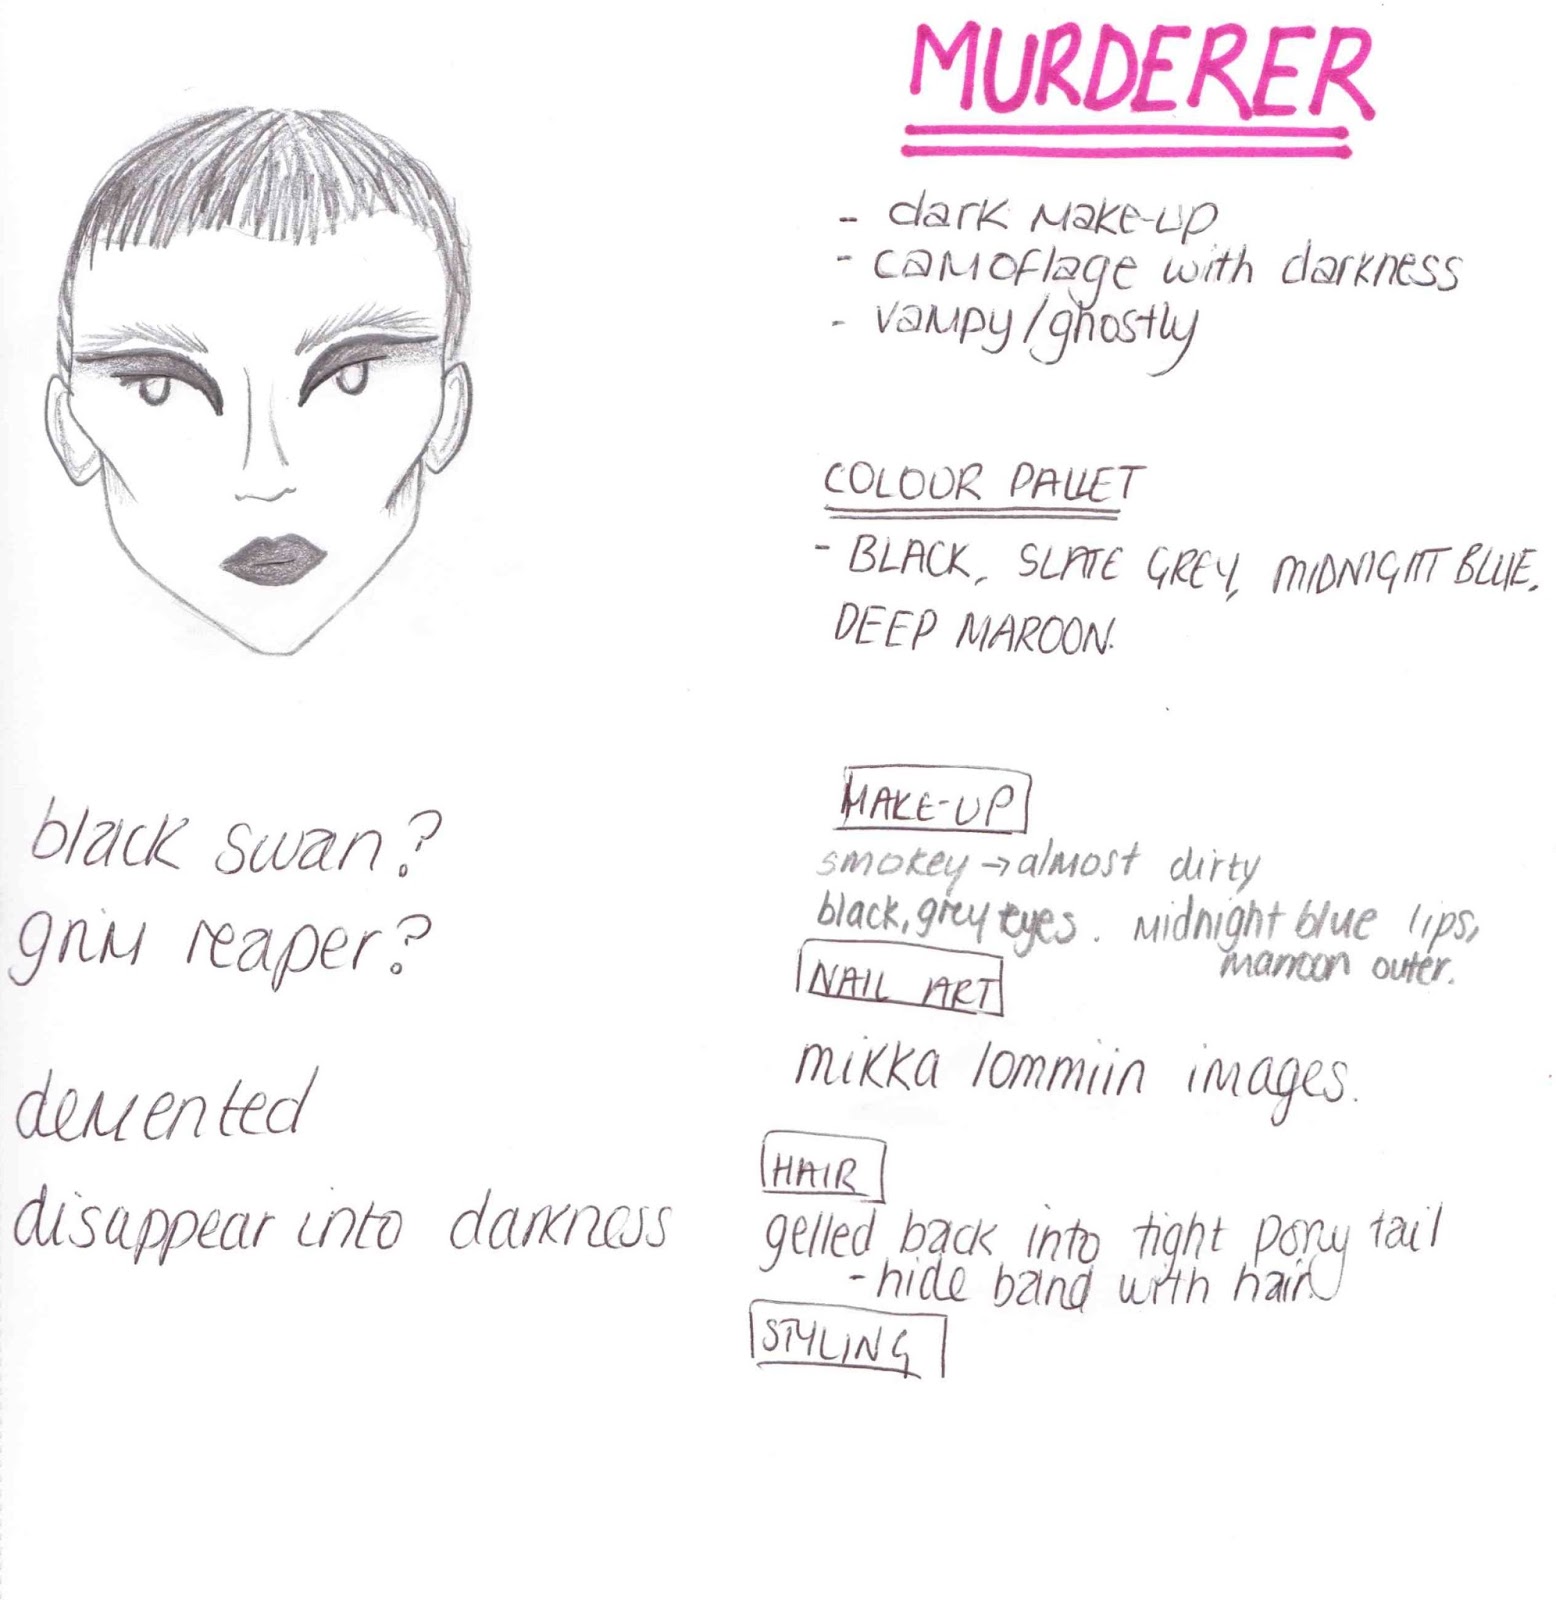 MURDERER
- dark make-up
- camoflage with darkness
- vampy/ghostly
COLOUR PALLET
- BLACK, SLATE GREY, MIDNIGHT BLUE,
DEEP MAROON.
MAKE-UP
smokey → almost dirty
black, grey eyes. midnight blue lips,
maroon outer.
NAIL ART
mikka lommiin images.
HAIR
gelled back into tight pony tail
- hide band with hair
STYLING
black swan?
grim reaper?
demented
disappear into darkness